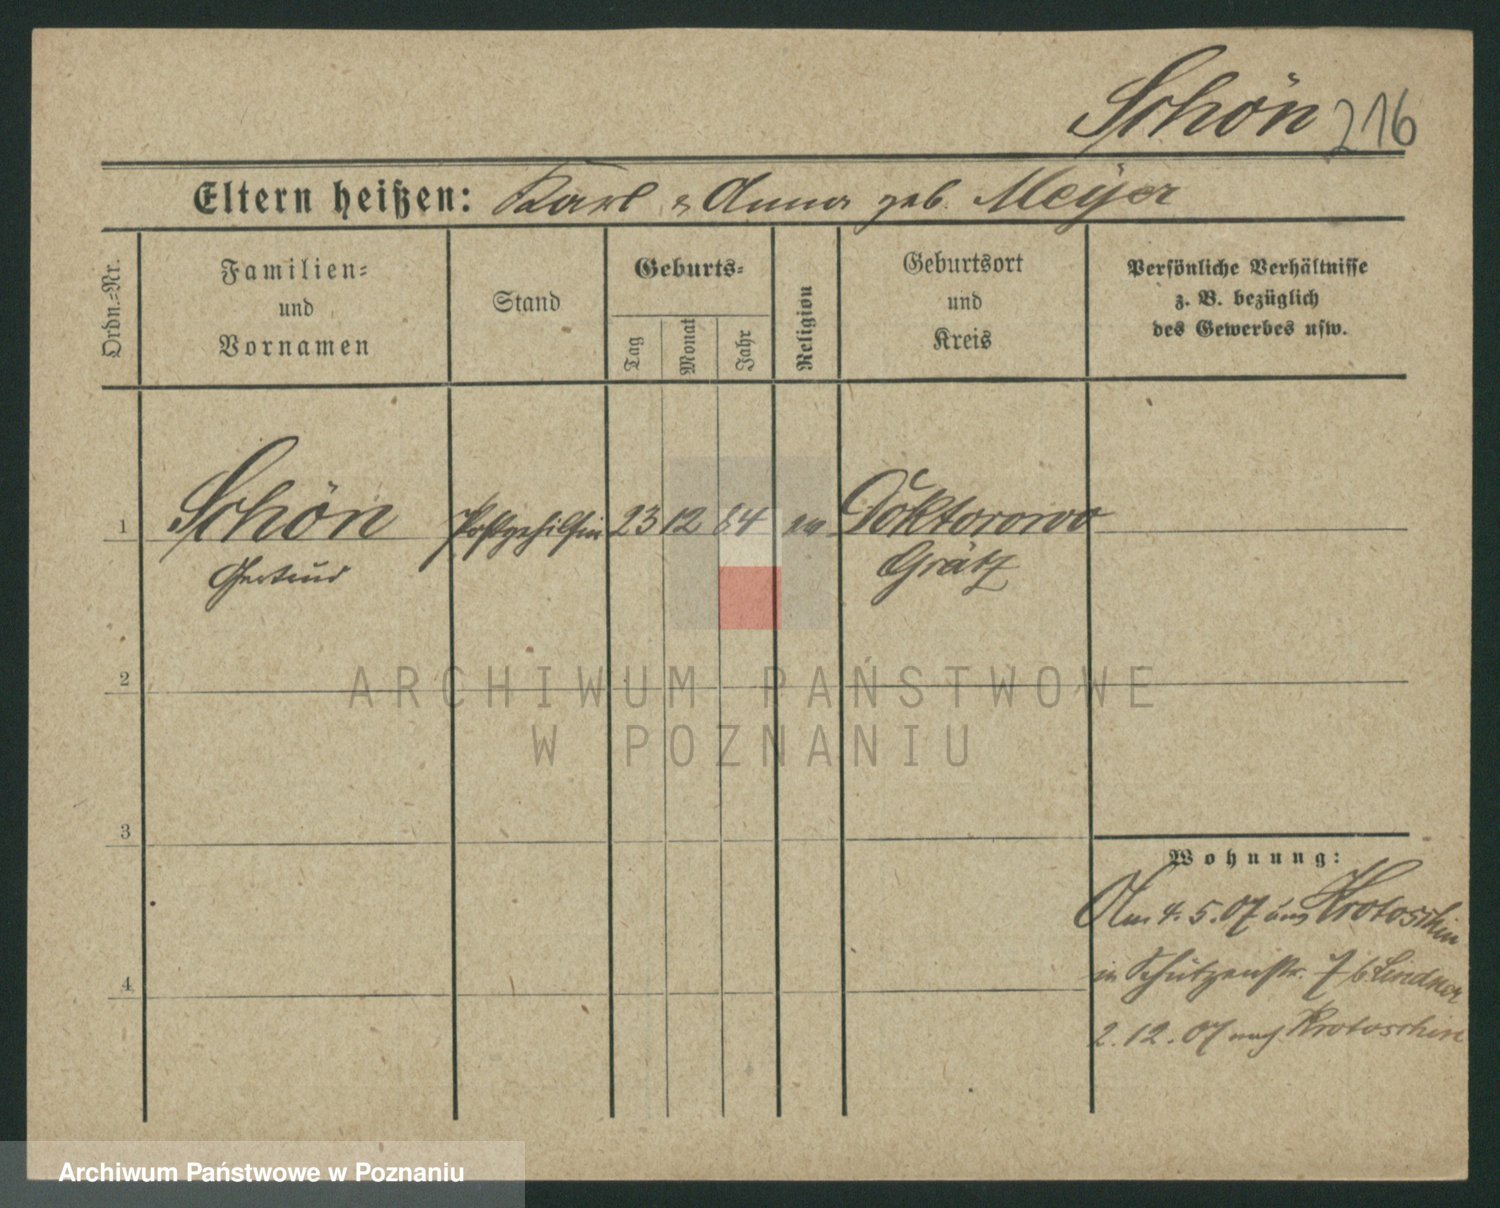 Schön 216
Eltern heißen: Karl & Anna geb. Meyer
Ordn.=Nr.
Familien=
und
Vornamen
Stand
Geburts=
Tag
Monat
Jahr
Religion
Geburtsort
und
Kreis
Persönliche Verhältnisse
z. B. bezüglich
des Gewerbes usw.
1 Schön Postgehilfin 23 12 84 ev Doktorowo
Gertrud Grätz
2
3
4
Wohnung:
Am 4. 5. 07 aus Krotoschin
in Schützenstr. 7 b Lindner
2. 12. 07 nach Krotoschin
ARCHIWUM PAŃSTWOWE
W POZNANIU
Archiwum Państwowe w Poznaniu